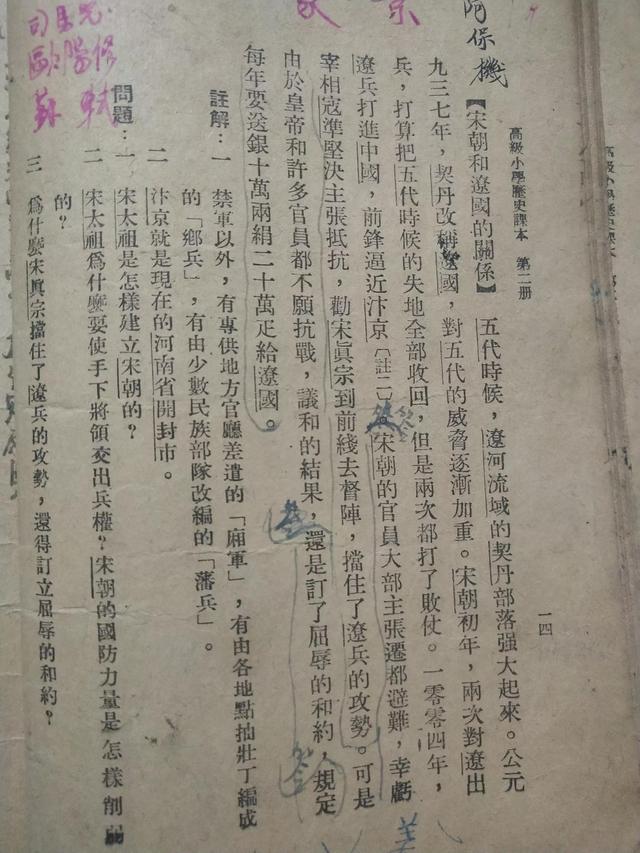 阿保機
高級小學歷史課本 第二册
一四
【宋朝和遼國的關係】 五代時候，遼河流域的契丹部落强大起來。公元
九三七年，契丹改稱遼國，對五代的威脅逐漸加重。宋朝初年，兩次對遼出
兵，打算把五代時候的失地全部收回，但是兩次都打了敗仗。一零零四年，
遼兵打進中國，前鋒逼近汴京〔註二〕。宋朝的官員大部主張遷都避難，幸虧
宰相寇準堅決主張抵抗，勸宋眞宗到前綫去督陣，擋住了遼兵的攻勢。可是
由於皇帝和許多官員都不願抗戰，議和的結果，還是訂了屈辱的和約，規定
每年要送銀十萬兩絹二十萬疋給遼國。
註解：一 禁軍以外，有專供地方官廳差遣的「廂軍」，有由各地點抽壯丁編成
的「鄉兵」，有由少數民族部隊改編的「藩兵」。
二 汴京就是現在的河南省開封市。
問題：一 宋太祖是怎樣建立宋朝的？
二 宋太祖爲什麽要使手下將領交出兵權？宋朝的國防力量是怎樣削弱
的？
三 爲什麽宋眞宗擋住了遼兵的攻勢，還得訂立屈辱的和約？
司馬光
歐陽修
蘇軾